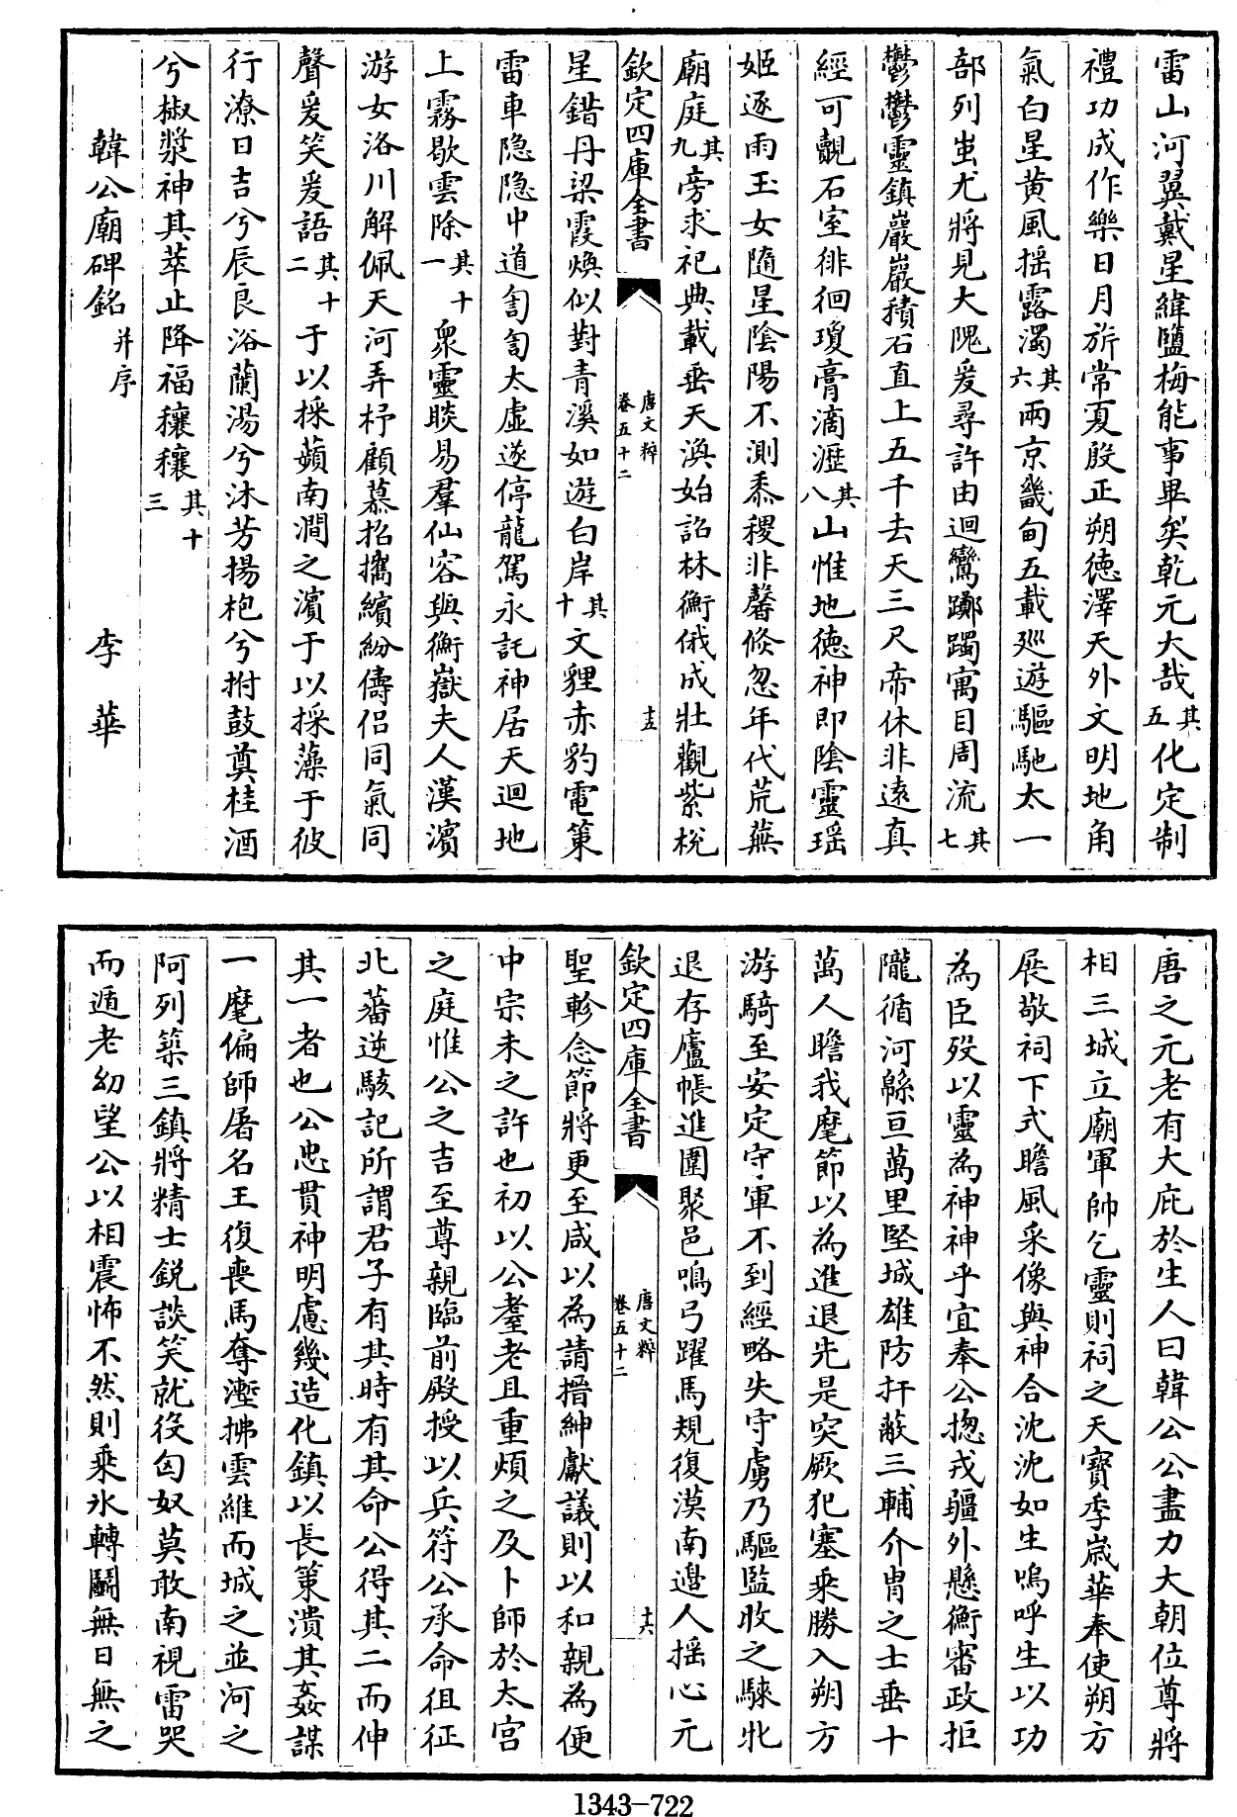 雷山河翼戴星緯鹽梅能事畢矣乾元大哉其五化定制
禮功成作樂日月旂常夏殷正朔徳澤天外文明地角
氣白星黄風揺露濁其六兩京畿甸五載廵遊驅馳太一
部列蚩尤將見大隗爰尋許由迴鸞躑躅寓目周流其七
鬱鬱靈鎮巖巖積石直上五千去天三尺帝休非逺真
經可覿石室徘徊瓊膏滴瀝其八山惟地徳神即隂靈瑶
姬逐雨玉女隨星隂陽不測黍稷非馨倐忽年代荒蕪
廟庭其九旁求祀典載垂天渙始詔林衡俄成壯觀紫梲
欽定四庫全書
唐文粹
卷五十二
十五
星錯丹梁霞煥似對青溪如遊白岸其十文貍赤豹電策
雷車隐隐中道訇訇太虚遂停龍駕永託神居天迴地
上霧歇雲除其十一衆靈睒易羣仙容與衡嶽夫人漢濱
游女洛川解佩天河弄杼顧慕招攜繽紛儔侣同氣同
聲爰笑爰語其十二于以採蘋南澗之濱于以採藻于彼
行潦日吉兮辰良浴蘭湯兮沐芳揚枹兮拊鼓奠桂酒
兮椒漿神其萃止降福穰穰其十三
韓公廟碑銘并序 李華
唐之元老有大庇於生人曰韓公公盡力大朝位尊將
相三城立廟軍帥乞靈則祠之天寳季嵗華奉使朔方
展敬祠下式瞻風采像與神合沈沈如生嗚呼生以功
為臣歿以靈為神神乎宜奉公揔戎疆外懸衡審政拒
隴循河緜亘萬里堅城雄防扞蔽三輔介胄之士垂十
萬人瞻我麾節以為進退先是突厥犯塞乘勝入朔方
游騎至安定守軍不到經略失守虜乃驅監收之騋牝
退存廬帳進圍聚邑鳴弓躍馬規復漠南邉人揺心元
欽定四庫全書
唐文粹
卷五十二
十六
聖軫念節將更至咸以為請搢紳獻議則以和親為便
中宗未之許也初以公耋老且重煩之及卜師於太宫
之庭惟公之吉至尊親臨前殿授以兵符公承命徂征
北蕃逆駭記所謂君子有其時有其命公得其二而伸
其一者也公忠貫神明慮幾造化鎮以長策潰其姦謀
一麾偏師屠名王復喪馬奪漉拂雲維而城之並河之
阿列築三鎮將精士鋭談笑就役匈奴莫敢南視雷哭
而遁老幼望公以相震怖不然則乘氷轉鬭無日無之
1343-722